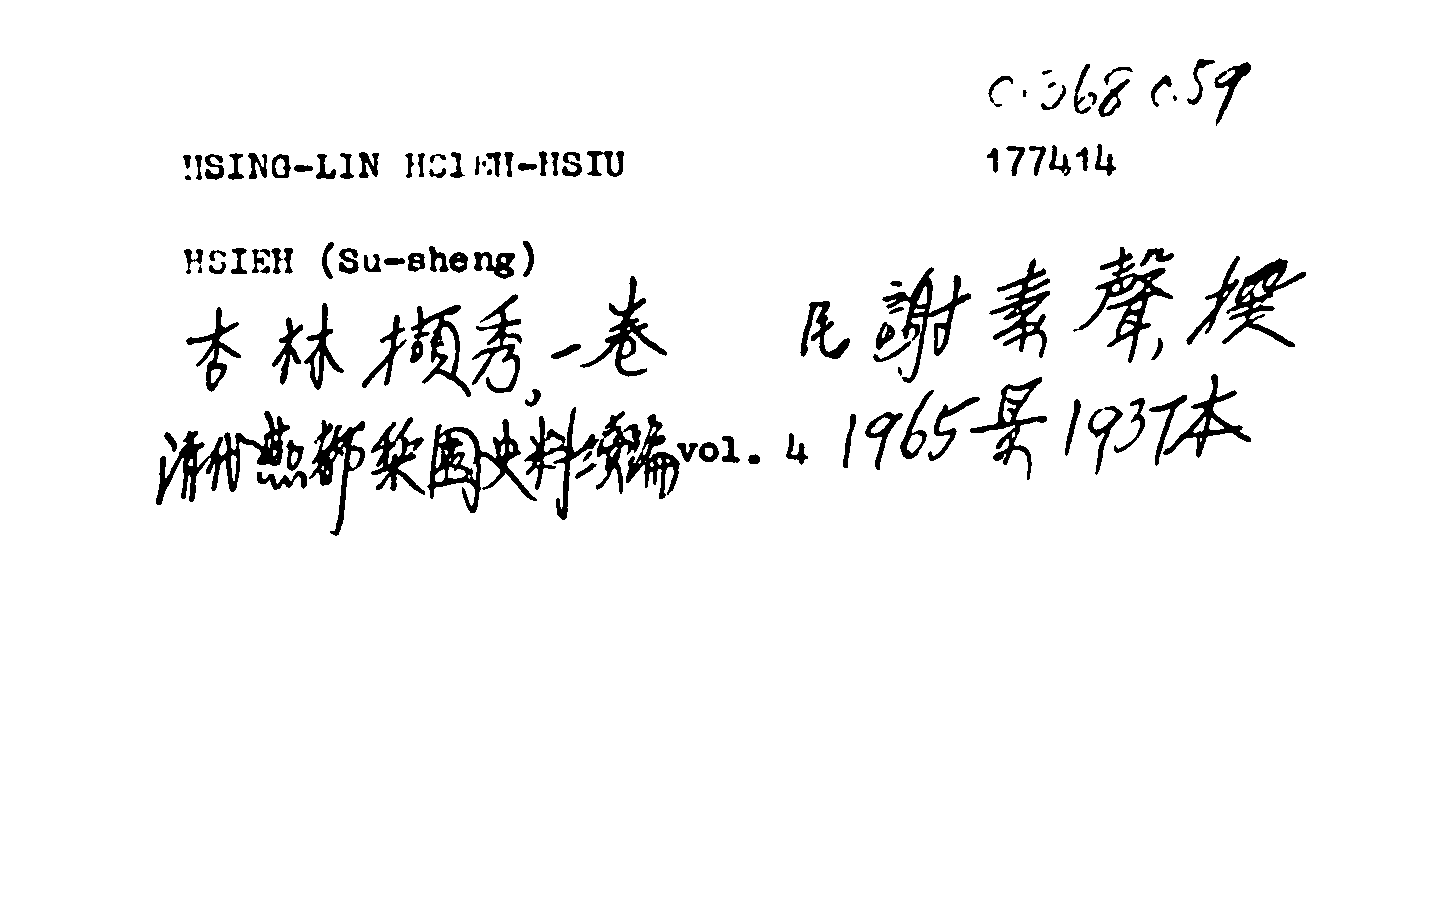 C.368 c.59
HSING-LIN HSIEH-HSIU 177414
HSIEH (Su-sheng)
杏林擷秀,一卷 民 謝素聲,撰
清代燕都梨園史料續編 vol. 4 1965景1937本